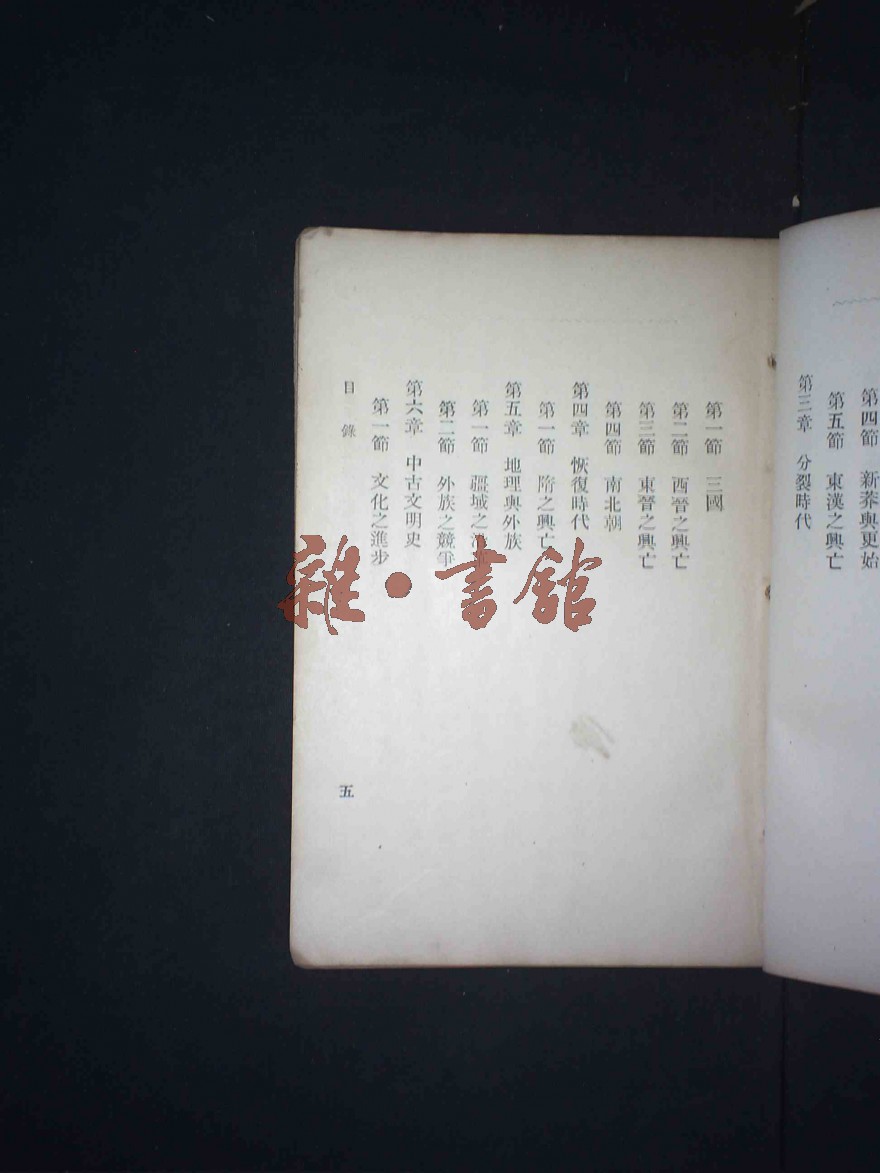 第四節 新莽與更始
第五節 東漢之興亡
第三章 分裂時代
第一節 三國
第二節 西晉之興亡
第三節 東晉之興亡
第四節 南北朝
第四章 恢復時代
第一節 隋之興亡
第五章 地理與外族
第一節 疆域之
第二節 外族之競爭
第六章 中古文明史
第一節 文化之進步
目錄
五
雜·書館